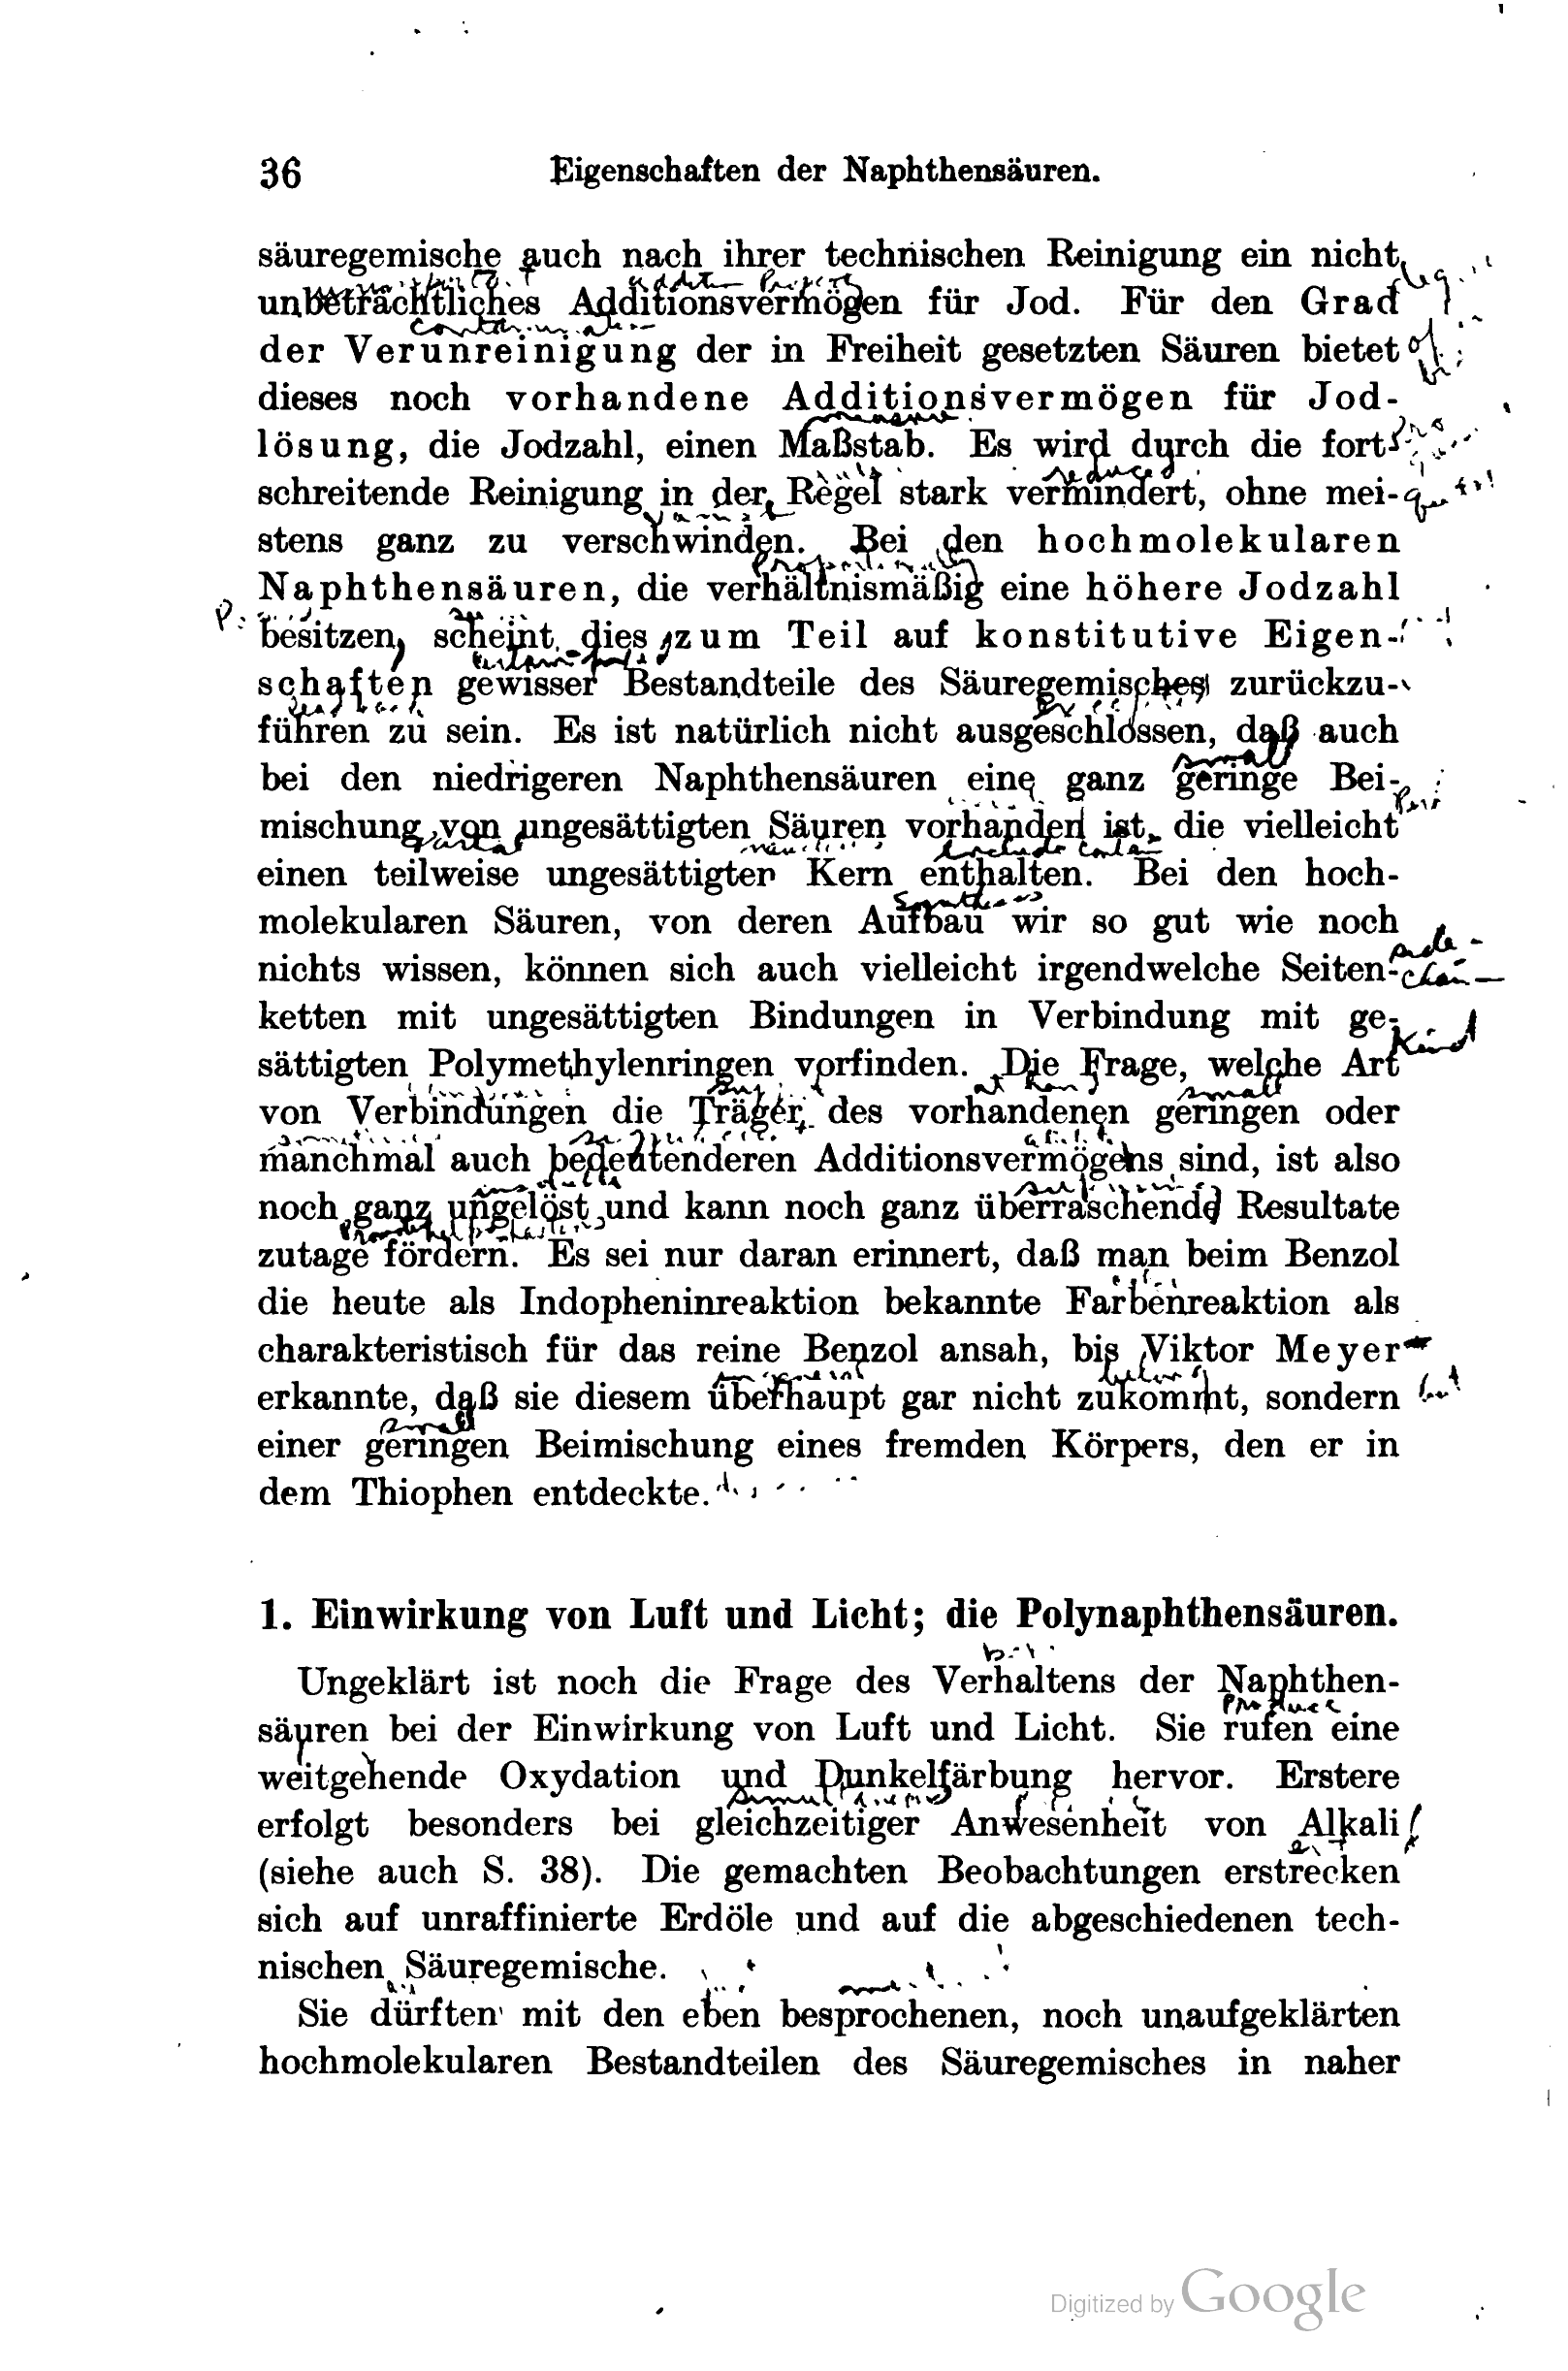 36 Eigenschaften der Naphthensäuren.
säuregemische auch nach ihrer technischen Reinigung ein nicht
unbeträchtliches Additionsvermögen für Jod. Für den Grad
der Verunreinigung der in Freiheit gesetzten Säuren bietet
dieses noch vorhandene Additionsvermögen für Jod-
lösung, die Jodzahl, einen Maßstab. Es wird durch die fort-
schreitende Reinigung in der Regel stark vermindert, ohne mei-
stens ganz zu verschwinden. Bei den hochmolekularen
Naphthensäuren, die verhältnismäßig eine höhere Jodzahl
besitzen, scheint dies zum Teil auf konstitutive Eigen-
schaften gewisser Bestandteile des Säuregemisches zurückzu-
führen zu sein. Es ist natürlich nicht ausgeschlossen, daß auch
small
bei den niedrigeren Naphthensäuren eine ganz geringe Bei-
mischung von ungesättigten Säuren vorhanden ist, die vielleicht
einen teilweise ungesättigten Kern enthalten. Bei den hoch-
molekularen Säuren, von deren Aufbau wir so gut wie noch
nichts wissen, können sich auch vielleicht irgendwelche Seiten-
ketten mit ungesättigten Bindungen in Verbindung mit ge-
Kind
sättigten Polymethylenringen vorfinden. Die Frage, welche Art
small
von Verbindungen die Träger des vorhandenen geringen oder
manchmal auch bedeutenderen Additionsvermögens sind, ist also
noch ganz ungelöst und kann noch ganz überraschende Resultate
zutage fördern. Es sei nur daran erinnert, daß man beim Benzol
die heute als Indopheninreaktion bekannte Farbenreaktion als
charakteristisch für das reine Benzol ansah, bis Viktor Meyer
erkannte, daß sie diesem überhaupt gar nicht zukommt, sondern
small
einer geringen Beimischung eines fremden Körpers, den er in
dem Thiophen entdeckte.
1. Einwirkung von Luft und Licht; die Polynaphthensäuren.
Ungeklärt ist noch die Frage des Verhaltens der Naphthen-
produce
säuren bei der Einwirkung von Luft und Licht. Sie rufen eine
weitgehende Oxydation und Dunkelfärbung hervor. Erstere
erfolgt besonders bei gleichzeitiger Anwesenheit von Alkali
(siehe auch S. 38). Die gemachten Beobachtungen erstrecken
sich auf unraffinierte Erdöle und auf die abgeschiedenen tech-
nischen Säuregemische.
Sie dürften mit den eben besprochenen, noch unaufgeklärten
hochmolekularen Bestandteilen des Säuregemisches in naher
Digitized by Google